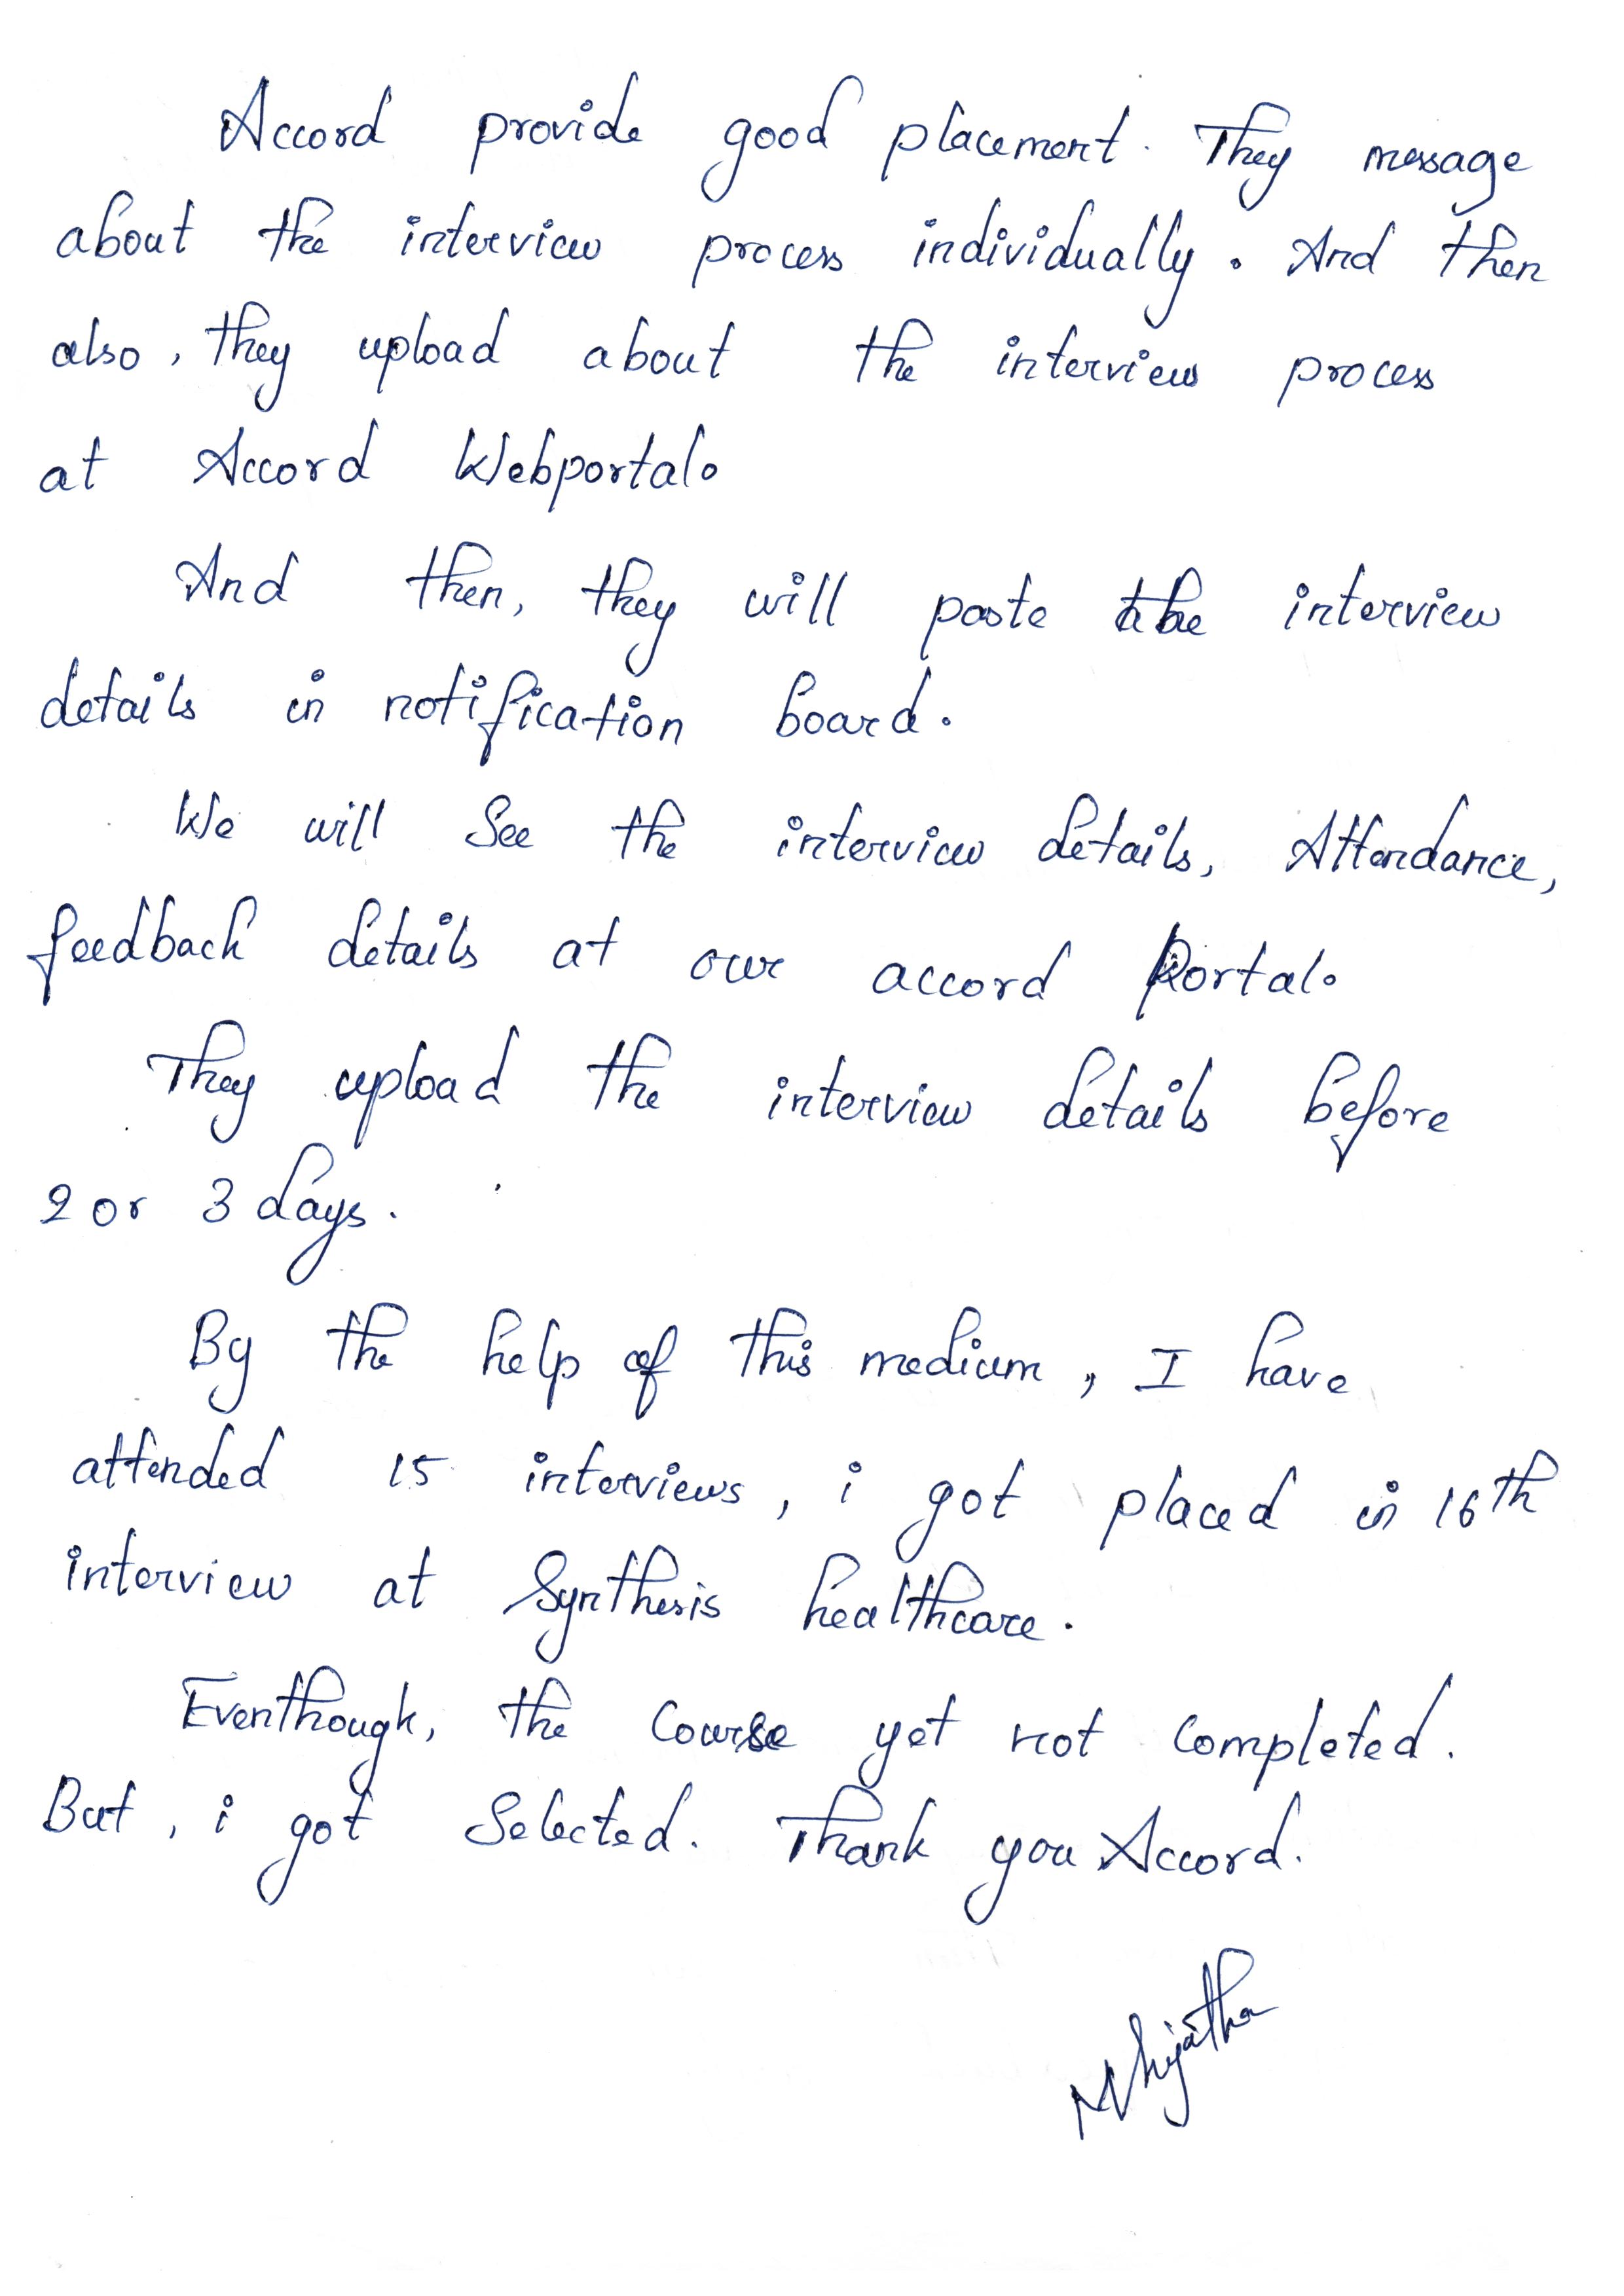 Accord provide good placement. They message
about the interview process individually. And then
also, they upload about the interview process
at Accord Webportal.
And then, they will paste the interview
details in notification board.
We will See the interview details, Attendance,
feedback details at our accord Portal.
They upload the interview details before
2 or 3 days.
By the help of this medium, I have
attended 15 interviews, i got placed in 16th
interview at Synthesis healthcare.
Eventhough, the Course yet not Completed.
But, i got Selected. Thank you Accord.